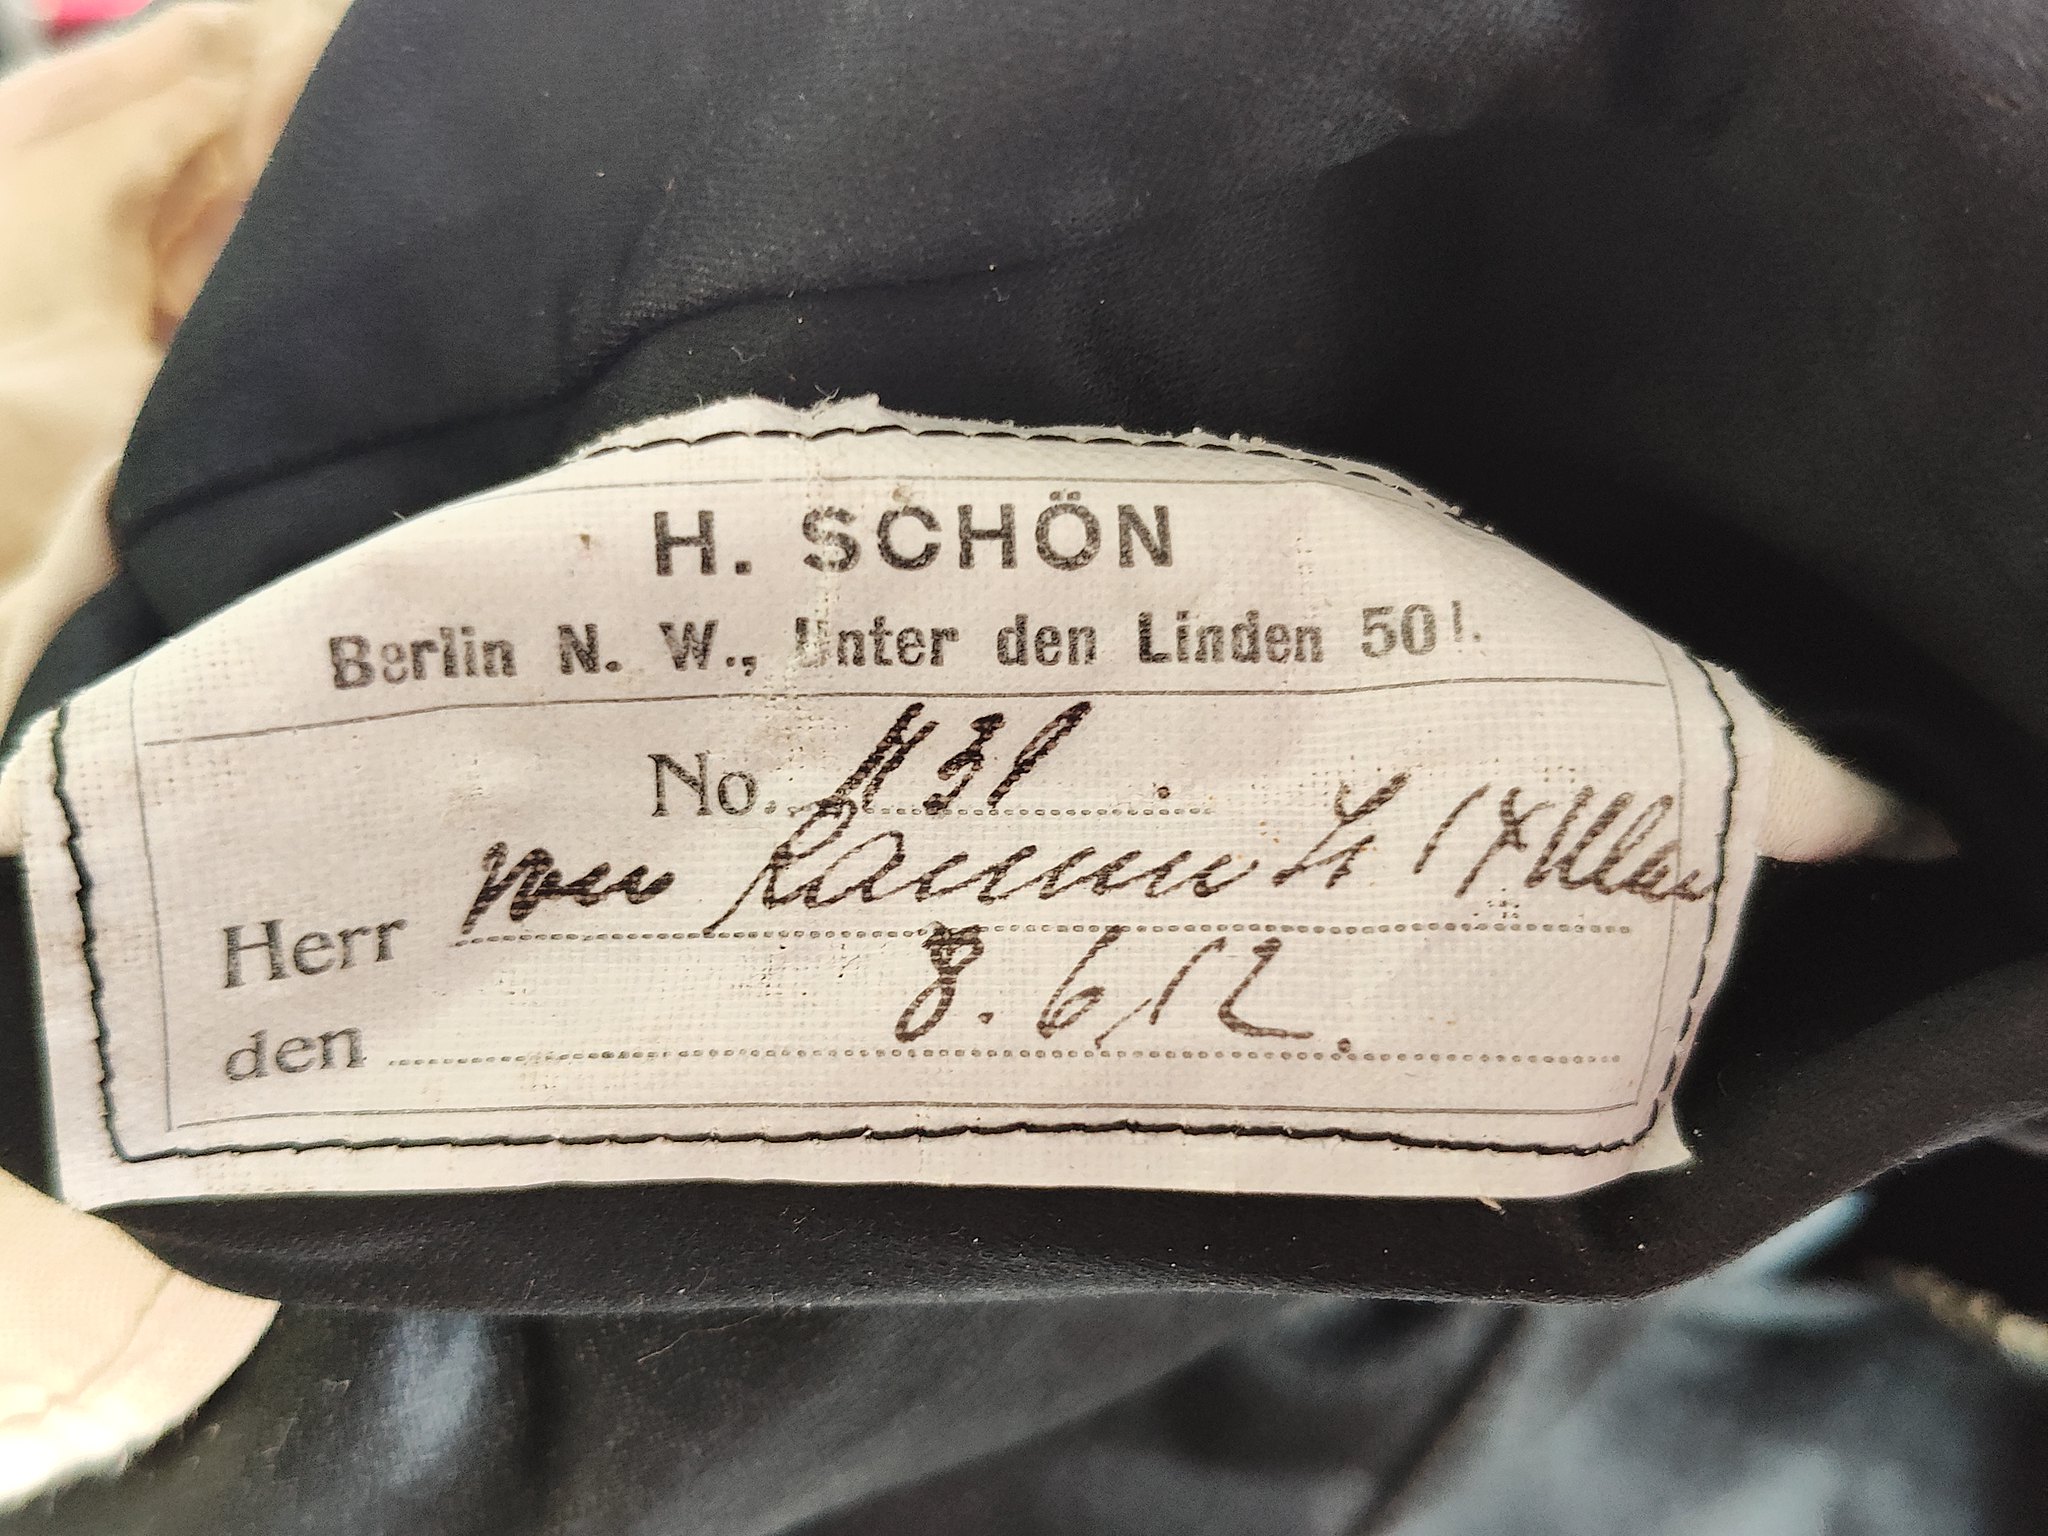 H. SCHÖN
Berlin N. W., Unter den Linden 50 I.
No. 1131
Herr von Ramm Lt 17 Ulan
den 8. 6. 12.